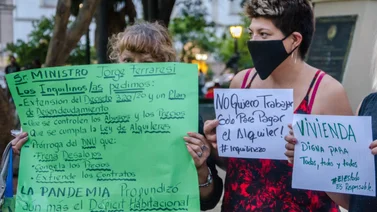 Sr MINISTRO Jorge Ferraresi
Los Inquilinos les pedimos:
-Extensión del Decreto 320/20 y un Plan
de Desendeudamiento
-Que se controlen los Abusos y los Precios
-Que se cumpla la Ley de Alquileres
-Prórroga del DNU que:
Frena Desalojos
Congela los Precios
Extiende los Contratos
LA PANDEMIA Profundizó
aún más el Déficit Habitacional
No Quiero Trabajar
Solo Para Pagar
el Alquiler!
#Inquilinxs
VIVIENDA
DIGNA PARA
Todas, todes y todos
#ElEstado
Es Responsable